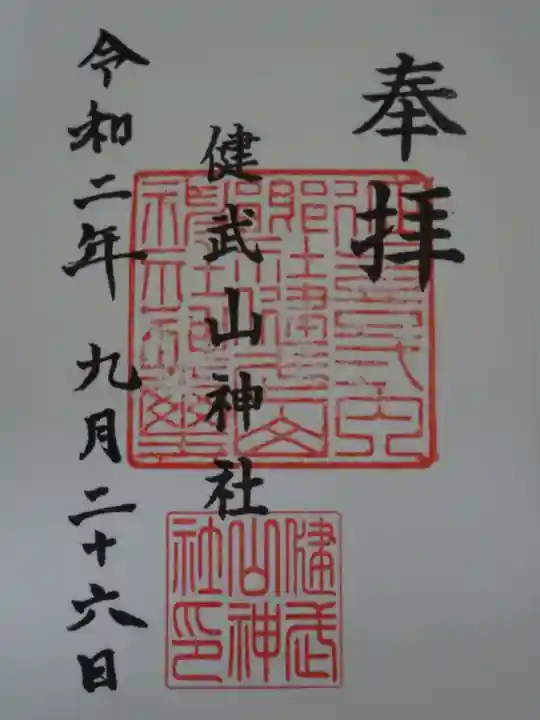 奉拝
健武山神社
令和二年 九月二十六日
健武
山神
社印